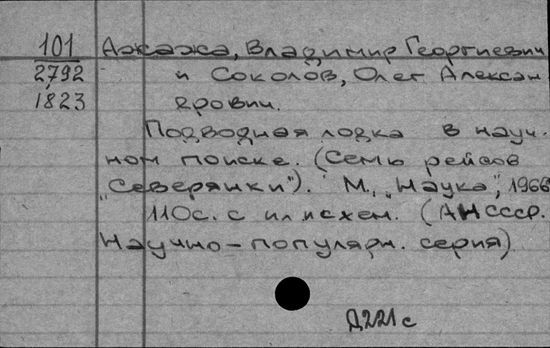 101 Ажажа, Владимир Георгиевич
2,792 и Соколов, Олег Алексан
1,823 дрович.
Подводная лодка в науч-
ном поиске. (Семь рейсов
"Северянки"). М., "Наука", 1966
110с. с ил и схем. (АН СССР.
Научно-популярн. серия)
Д221с